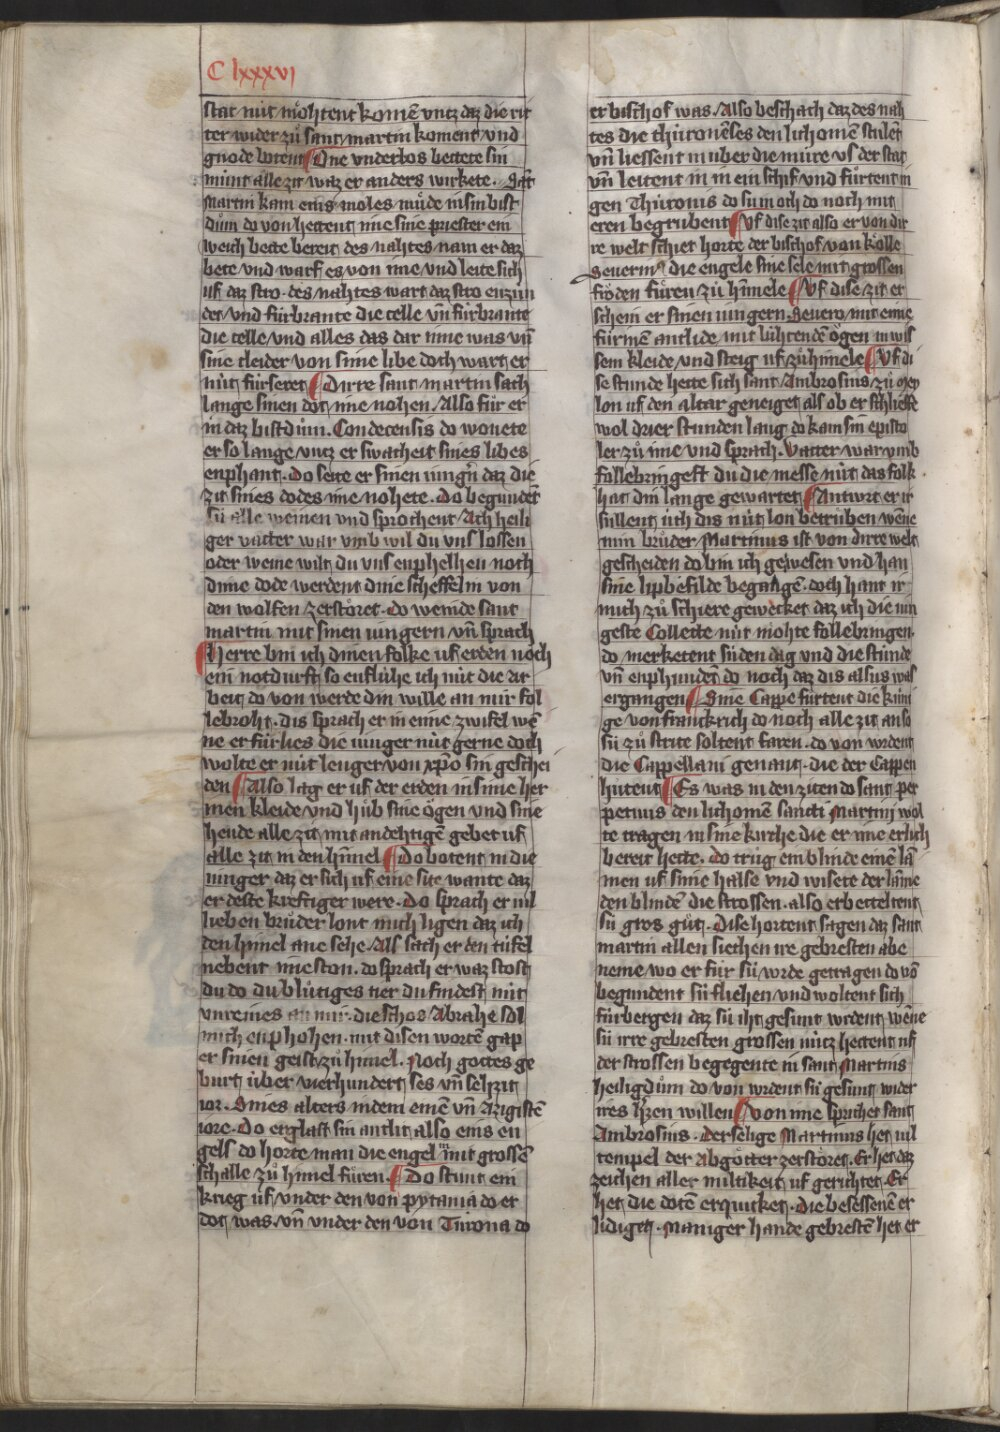 C lxxxvj
stat nüt möhtent komē vntz daz die rit
ter wider zů sant martin koment vnd
gnode botent One vnderlos bettete sin
munt alle zit waz er anders wirkete. Sāt
Martin kam eins moles můde in sin bist
dům do von hettent ime sine priester ein
weich bette bereit des nahtes nam er daz
bete vnd warf es von ime vnd leite sich
uf daz stro. des nahtes wart daz stro enzun
det vnd fürbrante die celle vn̄ fürbrante
die celle vnd alles das dar inne was vn̄
sine cleider von sime libe doch wart er
nüt fürseret Dirre sant martin sach
lange sinen dot ime nohen. Also für er
in daz bistdům. Condecensis do wonete
er so lange vntz er swacheit sines libes
enphant. Do seite er sinen iungern daz die
zit sines dodes ime nohete. Do begundēt
sü alle weinen vnd sprochent Ach heili
ger vatter war vmb wil du vns lossen
oder weme wilt du vns enphelhen noch
dime dode werdent dine scheffelin von
den wolfen zerstöret. do weinde sant
martin mit sinen iungern vn̄ sprach
Herre bin ich dinen folke uf erden noch
ein notdurft so enflühe ich nüt die ar
beit do von werde din wille an mir fol
lebroht. dis sprach er in eime zwifel wē
ne er fürlies die iunger nüt gerne doch
wolte er nüt lenger von xp̄o sin geschei
den Also lag er uf der erden in sime her
men kleide vnd hůb sine ögen vnd sine
hende alle zit mit andehtigē gebet uf
alle zit in den himel Do botent in die
iunger daz er sich uf eine site wante daz
er deste kreftiger were. Do sprach er mī
lieben brůder lont mich ligen daz ich
den himel ane sehe. Als sach er den tüfel
nebent ime ston. do sprach er waz stost
du do du blůtiges tier du findest nüt
vnreines an mir. die schos Abrahe sol
mich enphohen. mit disen wortē gap
er sinen geist zů himel. Noch gottes ge
burt über vierhundert ses vn̄ sehzit
ior. Sines alters in dem einē vn̄ Azigistē
iore. Do erglast sin antlit also eins en
gels do horte man die engel mit grossē
schalle zů himel füren. Do stunt ein
krieg uf vnder den von pytania do er
dot was. vn̄ vnder den von Turona do
er bischof was. Also beschach daz des nah
tes die thüronēses den lichomē stulēt
vn̄ liessent in über die müre us der stat
vn̄ leitent in in ein schif vnd fürtent in
gen Thüronis do sü in och do noch mit
eren begrubent Vf dise zit also er von dir
re welt schiet horte der bischof von kölle
Seuerin9 die engele sine sele mit grossen
fröden füren zů himele Vf dise zit er
schein er sinen iungern Seuero mit eime
fürinē antlide mit lühtendē ögen in wis
sem kleide vnd steig uf zů himele Vf di
se stunde hette sich sant Ambrosius zů mey
lon uf den altar geneiget als ob er schlieffe
wol drier stunden lang do kam sin episto
ler zů ime vnd sprach. Vatter war vmb
follebringest du die messe nüt das folk
hat din lange gewartet Antwrt er ir
süllent üch dis nüt lon betrůben wēne
min brůder Martinus ist von dirre welt
gescheiden do bin ich gewesen vnd han
sine lipbefilde begangē. doch hant ir
mich zů schiere gewecket daz ich die iun
geste Collecte nüt möhte follebringen.
do merketent sü den dag vnd die stunde
vn̄ enphundēt do noch daz dis alsus was
ergangen Sine Cappe fürtent die küni
ge von franckrich do noch alle zit an so
sü zů strite soltent faren. do von wrdent
die Cappellani genant. die der Cappen
hütent Es was in den ziten do sant per
petuus den lichomē sancti Martini wol
te tragen in sine kirche die er ime erlich
bereit hette. Do trůg ein blinde einē lā
men uf sime halse vnd wisete der lāme
den blindē die strossen. also erbetteltent
sü gros gůt. Dise hortent sagen daz sant
martin allen siechen ire gebresten abe
neme wo er für sü wrde getragen do vō
begundent sü fliehen vnd woltent sich
fürbergen daz sü iht gesunt wrdent wēne
sü irre gebresten grossen nütz hettent uf
der strossen begegente in sant Martins
heiligdům do von wrdent sü gesunt wider
ires h'zen willen Von ime sprichet sant
Ambrosius. der selige Martinus het vil
tempel der abgötter zerstöret. Er het daz
zeichen aller miltikeit uf gerichtet. Er
het die dotē erquicket. die besessenē er
lidiget. Maniger hande gebrestē het er